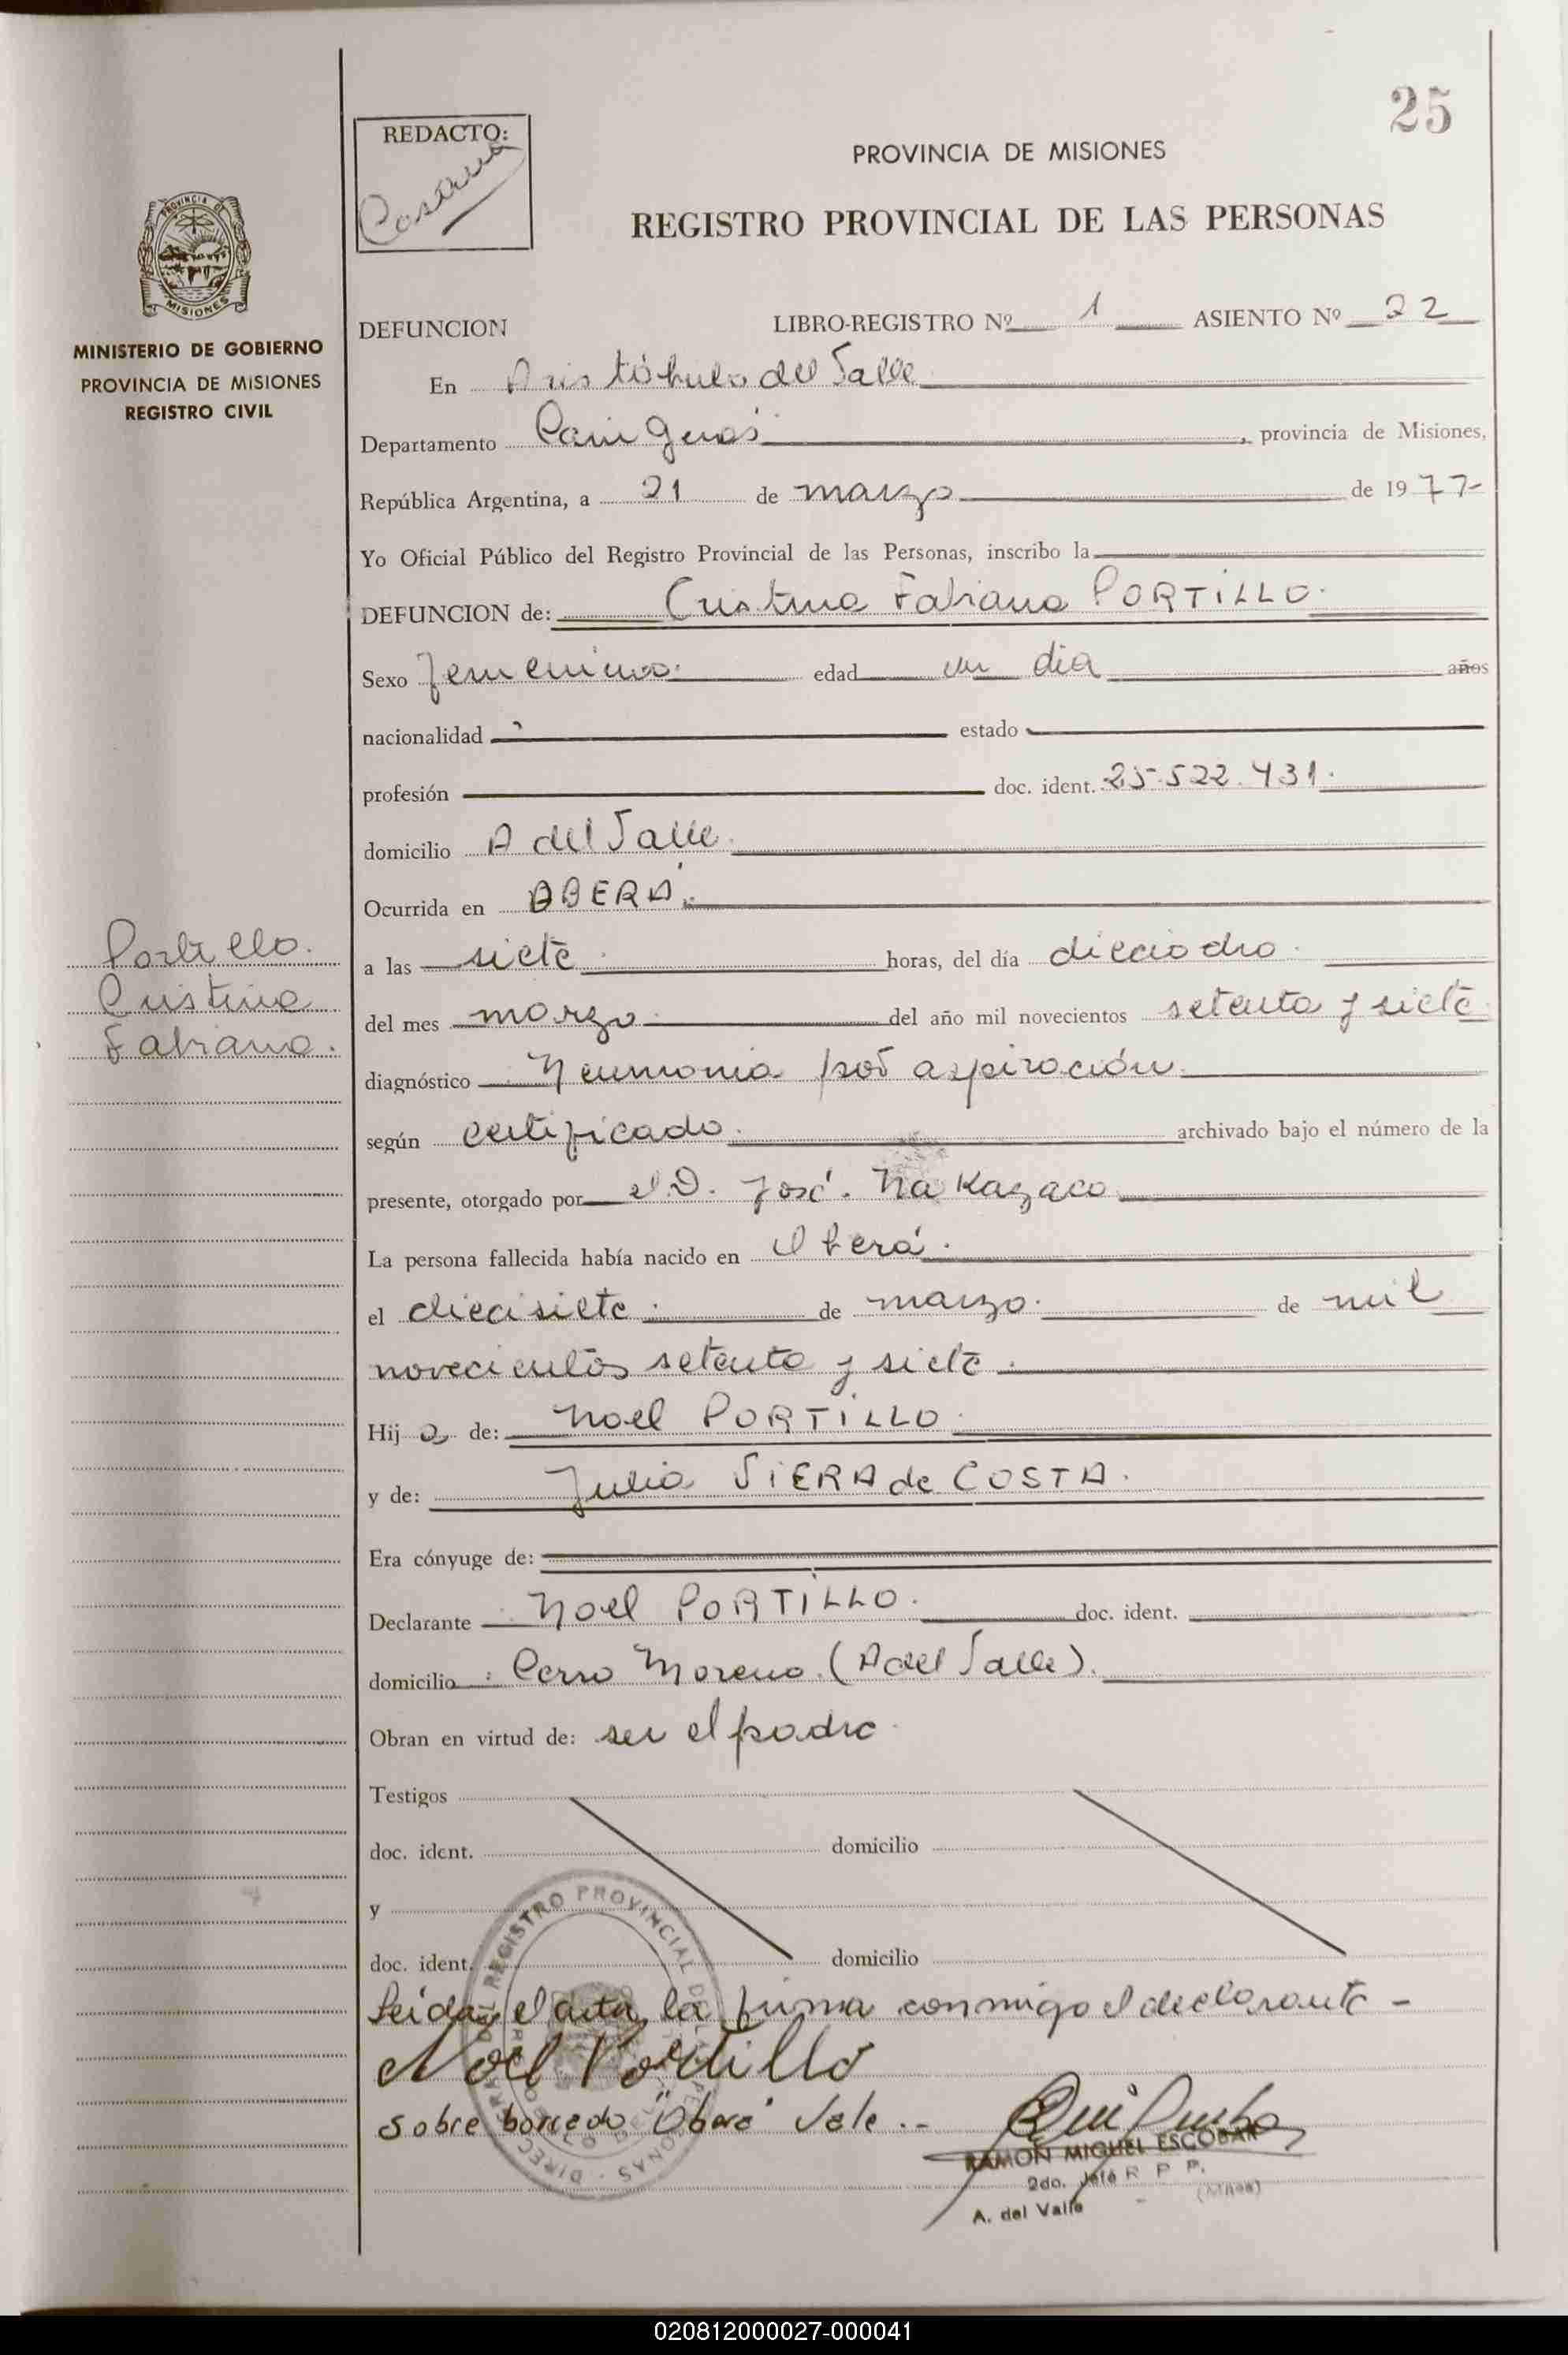 25
REDACTO:
PROVINCIA DE MISIONES
REGISTRO PROVINCIAL DE LAS PERSONAS
PROVINCIA DE
MISIONES
MINISTERIO DE GOBIERNO
PROVINCIA DE MISIONES
REGISTRO CIVIL
DEFUNCION LIBRO-REGISTRO Nº 1 ASIENTO Nº 22
En Aristóbulo del Valle
Departamento Cainguás, provincia de Misiones,
República Argentina, a 21 de marzo de 1977-
Yo Oficial Público del Registro Provincial de las Personas, inscribo la
DEFUNCION de: Cristina Fabiana PORTILLO.
Sexo femenino. edad un dia años
nacionalidad estado
profesión doc. ident. 25.522.431.
domicilio A del Valle.
Ocurrida en OBERÁ.
a las siete. horas, del día dieciocho.
del mes marzo del año mil novecientos setenta y siete
diagnóstico Neumonia por aspiración.
según certificado. archivado bajo el número de la
presente, otorgado por el D. José. Nakazaco
La persona fallecida había nacido en Oberá.
el diecisiete. de marzo. de mil
novecientos setenta y siete.
Hija de: Noel PORTILLO.
y de: Julia VIERA de COSTA.
Era cónyuge de:
Declarante Noel PORTILLO. doc. ident.
domicilio: Cerro Moreno. (A del Valle).
Obran en virtud de: ser el padre
Testigos
doc. ident. domicilio
y
doc. ident. domicilio
Leída el acta, la firma conmigo el declarante -
Noel Portillo
Sobre borrado "Oberá" Vale..-
RAMON MIGUEL ESCOBAR
2do. Jefe R P P.
A. del Valle
REGISTRO PROVINCIAL DE LAS PERSONAS
Portillo.
Cristina
Fabiana.
020812000027-000041